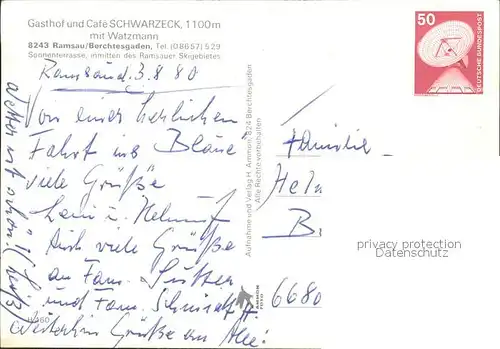 Gasthof und Café SCHWARZECK, 1100m
mit Watzmann
8243 Ramsau/Berchtesgaden, Tel. (08657) 529
Sonnenterrasse, inmitten des Ramsauer Skigebietes
Ramsau d. 3.8.80
Von einer herrlichen
Fahrt ins Blaue
viele Grüße
Leni u. Helmut
Auch viele Grüße
an Fam. Sutter
und Fam.
Weiterhin Grüße an Alle!
Wetter ist schön! (heiß)
Aufnahme und Verlag H. Ammon, 824 Berchtesgaden
Alle Rechte vorbehalten
AMMON
FOTO
50
DEUTSCHE BUNDESPOST
Familie
Hel
B
6680
privacy protection
Datenschutz